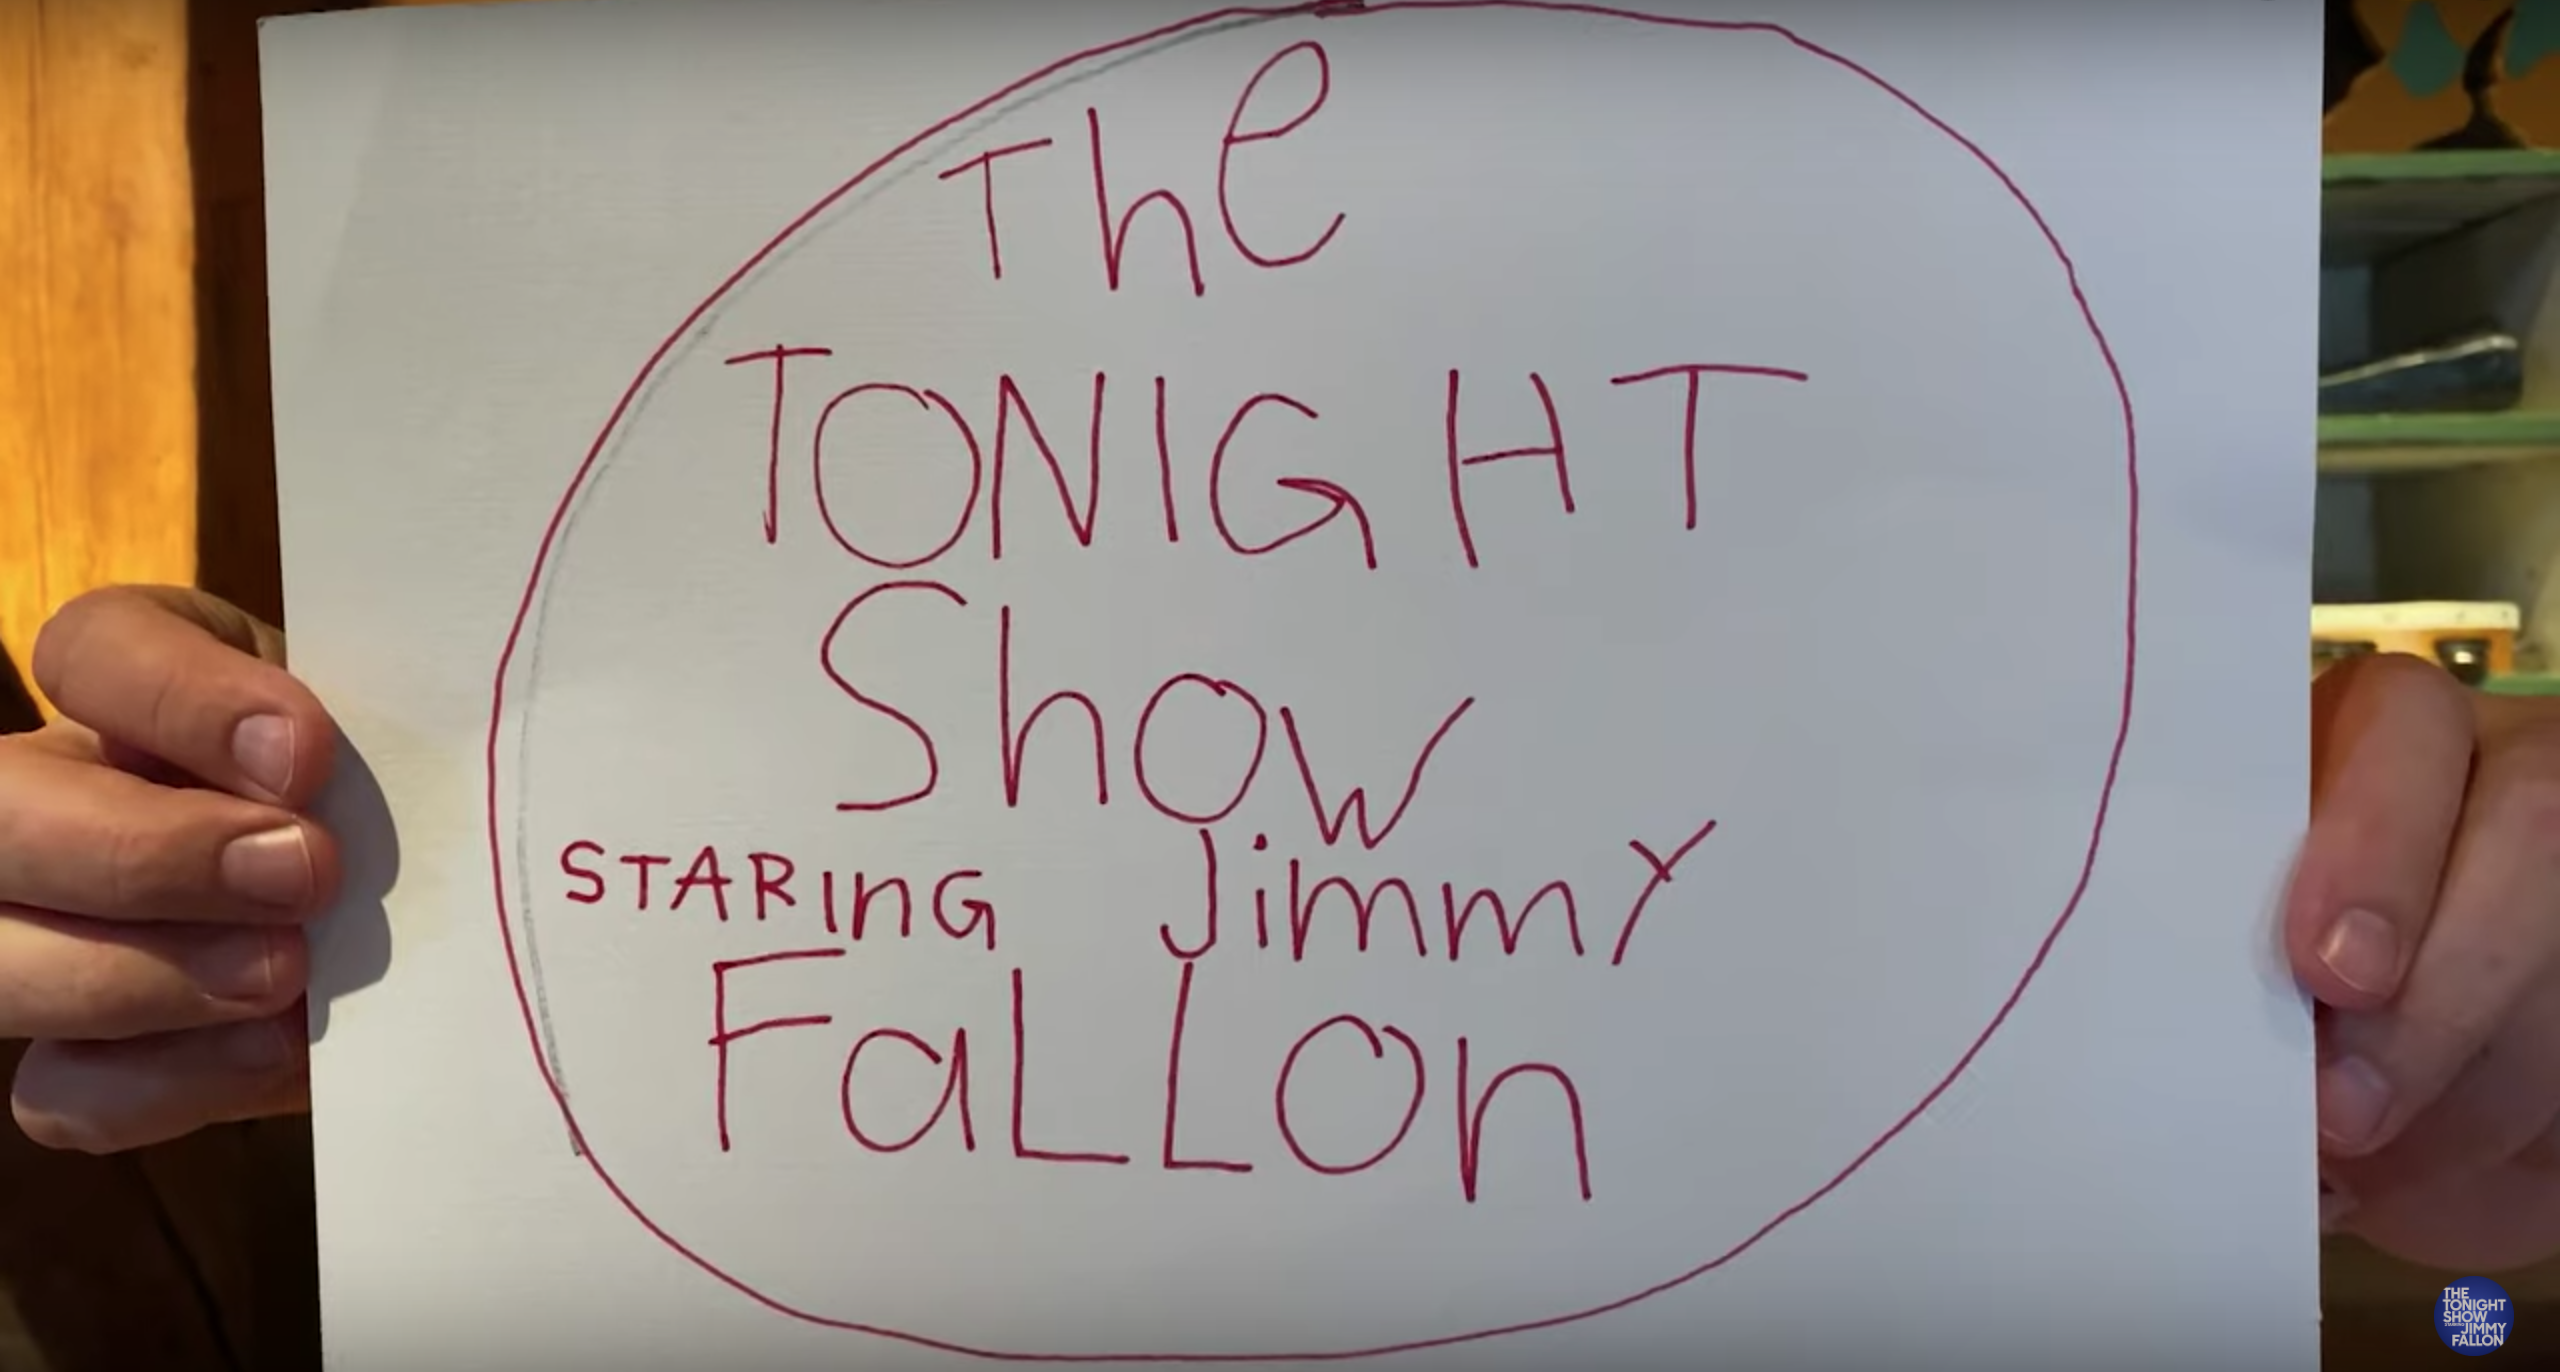 The
TONIGHT
Show
STARInG Jimmy
FaLLon
THE
TONIGHT
SHOW
JIMMY
FALLON